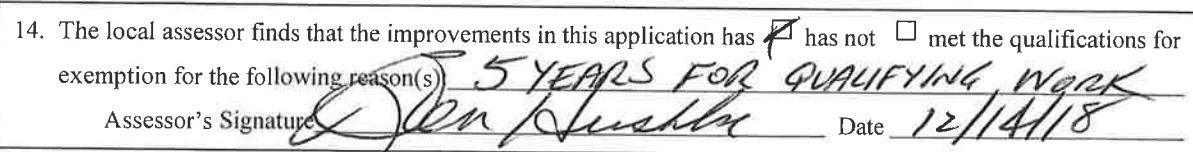 14. The local assessor finds that the improvements in this application has ☑ has not ☐ met the qualifications for
exemption for the following reason(s) 5 YEARS FOR QUALIFYING WORK
Assessor's Signature Date 12/14/18